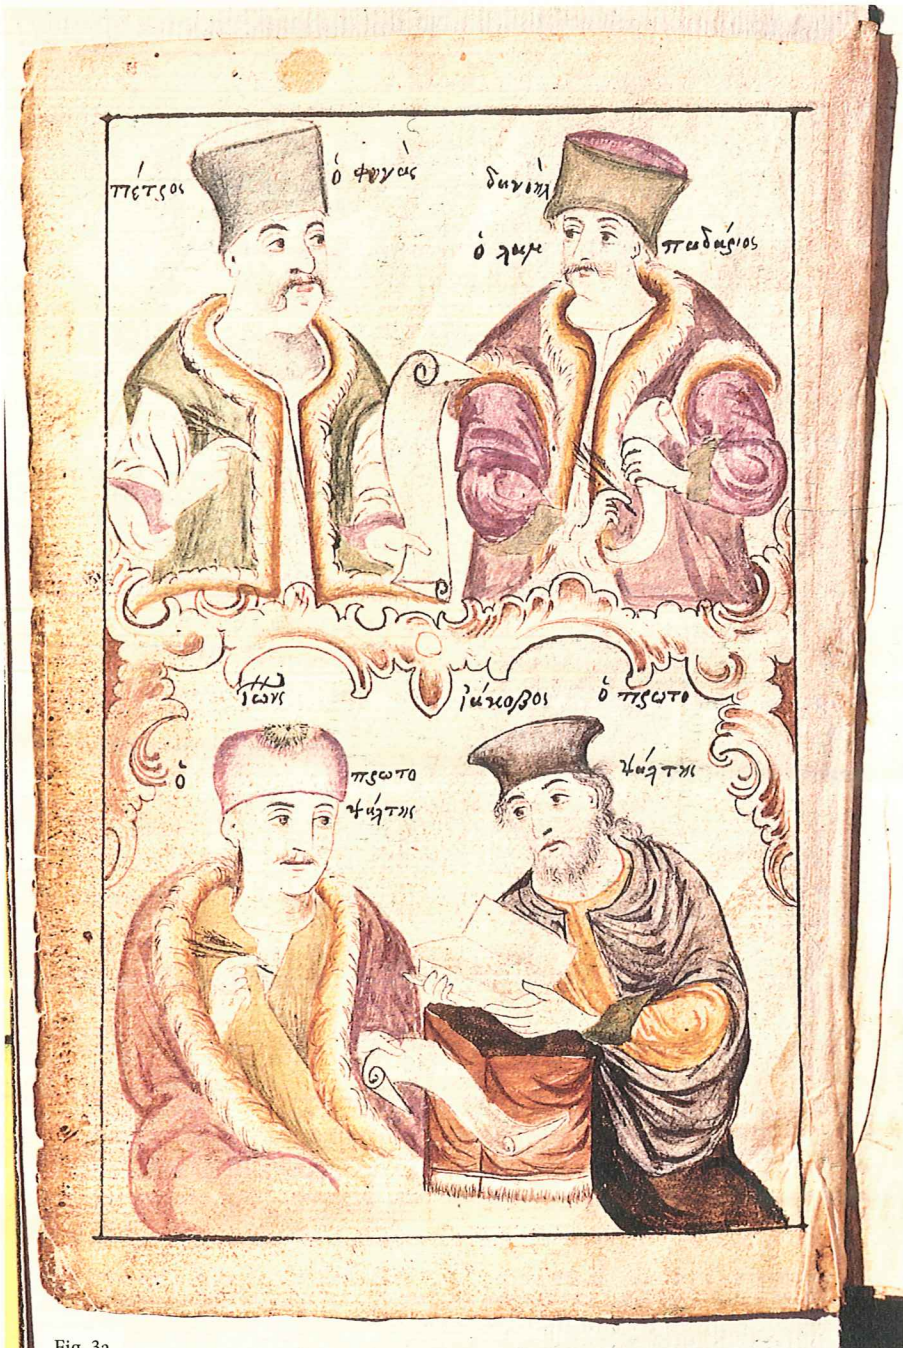 πέτρος ὁ φυγὰς
δανιὴλ
ὁ λαμπαδάριος
ἰωάνς
ἰάκοβος ὁ πρωτο
ψάλτης
ὁ πρωτο
ψάλτης
Fig. 3a